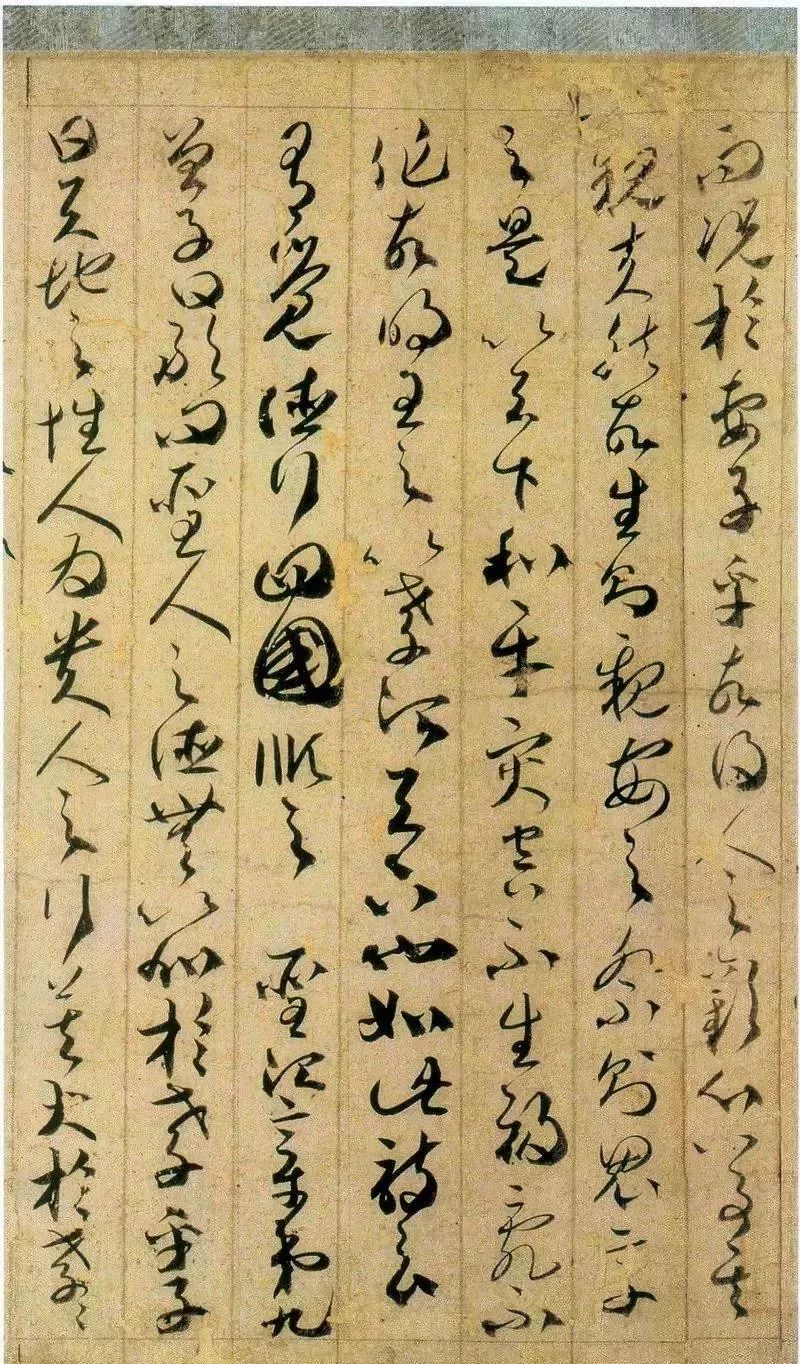 而況於妻子乎故得人之歡心以事其
親夫然故生則親安之祭則鬼享
之是以天下和平灾害不生禍亂不
作故明王之以孝治天下也如此詩云
有覺德行四國順之 聖治章第九
曾子曰敢問聖人之德無以加於孝乎子
曰天地之性人為貴人之行莫大於孝〻